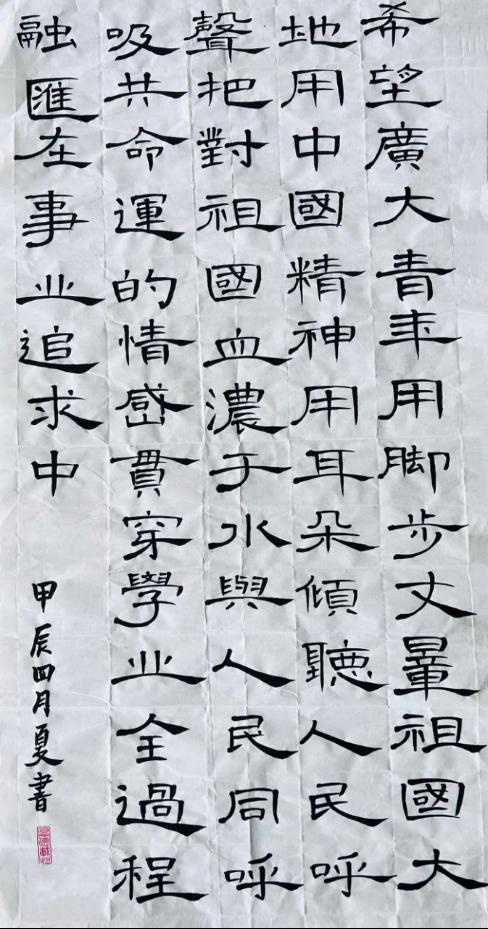 希望廣大青年用脚步丈暈祖國大
地用中國精神用耳朵傾聽人民呼
聲把對祖國血濃于水與人民同呼
吸共命運的情感貫穿學业全過程
融匯在事业追求中
甲辰四月夏書